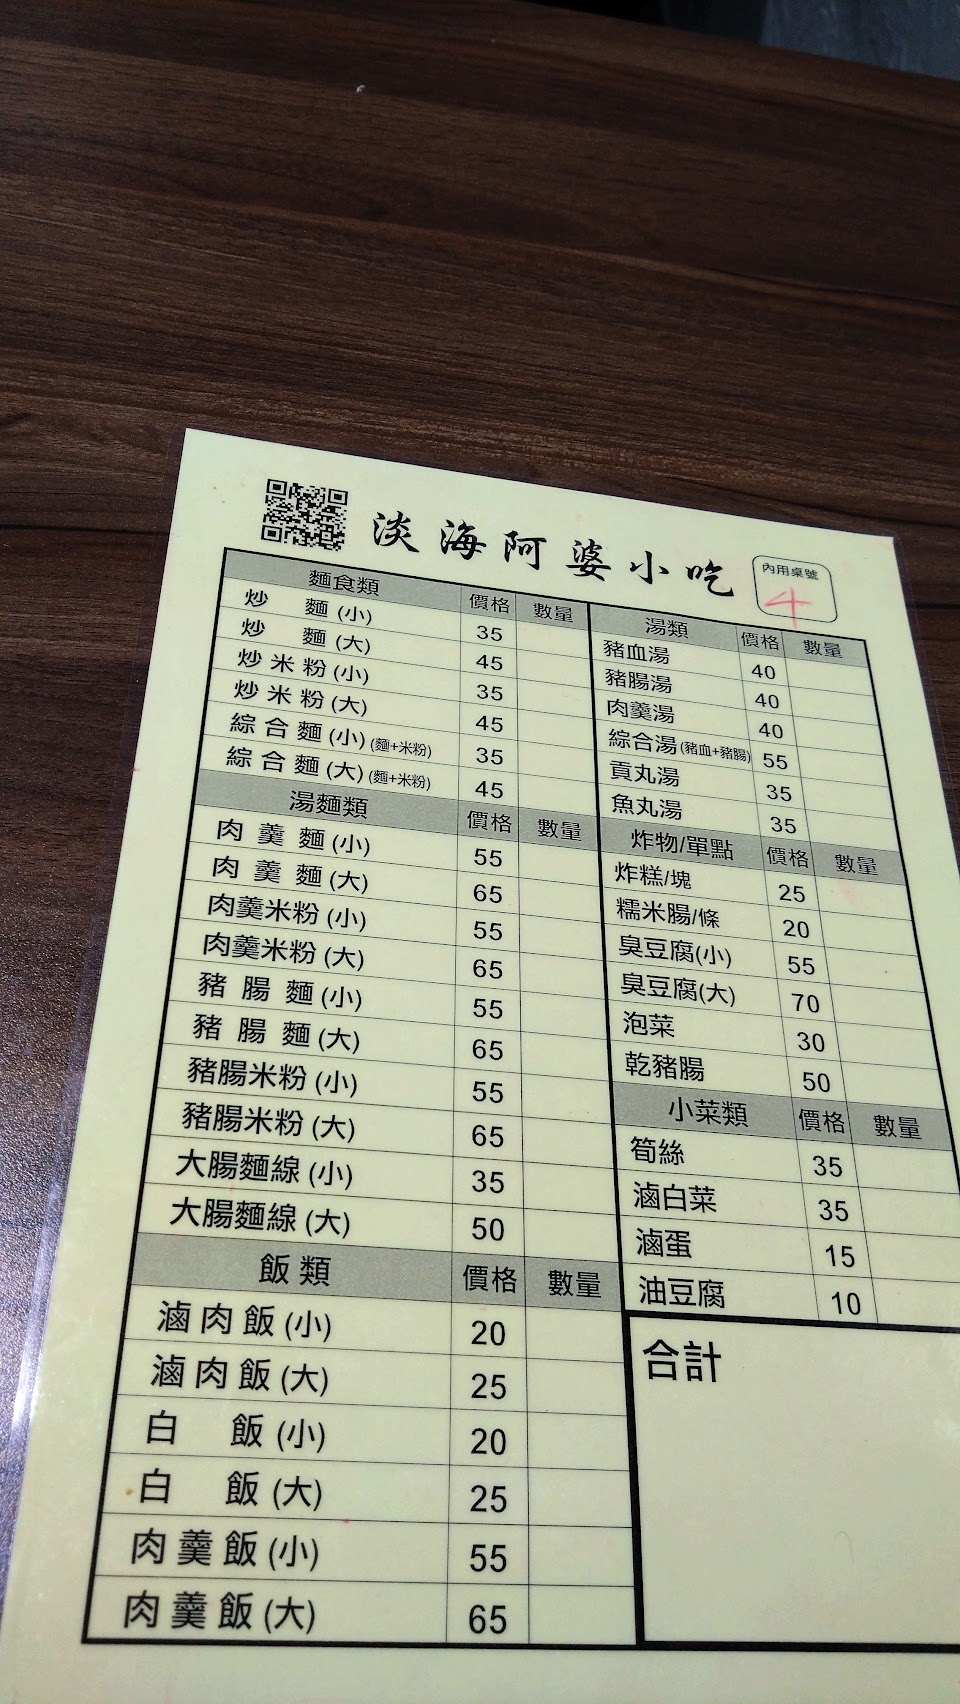 淡海阿婆小吃
內用桌號
4
麵食類 價格 數量
炒麵(小) 35
炒麵(大) 45
炒米粉(小) 35
炒米粉(大) 45
綜合麵(小)(麵+米粉) 35
綜合麵(大)(麵+米粉) 45
湯麵類 價格 數量
肉羹麵(小) 55
肉羹麵(大) 65
肉羹米粉(小) 55
肉羹米粉(大) 65
豬腸麵(小) 55
豬腸麵(大) 65
豬腸米粉(小) 55
豬腸米粉(大) 65
大腸麵線(小) 35
大腸麵線(大) 50
飯類 價格 數量
滷肉飯(小) 20
滷肉飯(大) 25
白飯(小) 20
白飯(大) 25
肉羹飯(小) 55
肉羹飯(大) 65
湯類 價格 數量
豬血湯 40
豬腸湯 40
肉羹湯 40
綜合湯(豬血+豬腸) 55
貢丸湯 35
魚丸湯 35
炸物/單點 價格 數量
炸糕/塊 25
糯米腸/條 20
臭豆腐(小) 55
臭豆腐(大) 70
泡菜 30
乾豬腸 50
小菜類 價格 數量
筍絲 35
滷白菜 35
滷蛋 15
油豆腐 10
合計